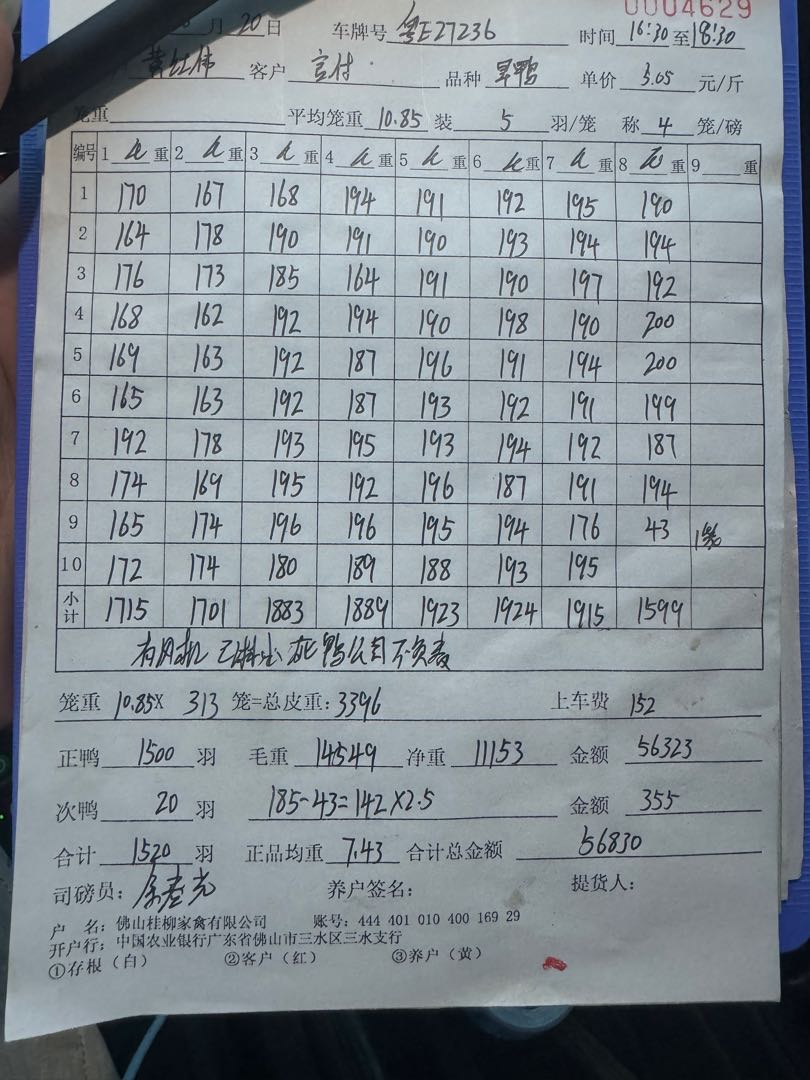 0004629
月 20 日 车牌号 粤E27236 时间 16:30 至 18:30
客户 品种 旱鸭 单价 3.05 元/斤
笼重 平均笼重 10.85 装 5 羽/笼 称 4 笼/磅
编号 1 重 2 重 3 重 4 重 5 重 6 重 7 重 8 重 9 重
1 170 167 168 194 191 192 195 190
2 164 178 190 191 190 193 194 194
3 176 173 185 164 191 190 197 192
4 168 162 192 194 190 198 190 200
5 169 163 192 187 196 191 194 200
6 165 163 192 187 193 192 191 199
7 192 178 193 195 193 194 192 187
8 174 169 195 192 196 187 191 194
9 165 174 196 196 195 194 176 43
10 172 174 180 189 188 193 195
小计 1715 1701 1883 1889 1923 1924 1915 1599
死鸭公司不负责
笼重 10.85X 313 笼=总皮重: 3396 上车费 152
正鸭 1500 羽 毛重 14549 净重 11153 金额 56323
次鸭 20 羽 185-43=142X2.5 金额 355
合计 1520 羽 正品均重 7.43 合计总金额 56830
司磅员: 养户签名: 提货人:
户 名: 佛山桂柳家禽有限公司 账号: 444 401 010 400 169 29
开户行: 中国农业银行广东省佛山市三水区三水支行
①存根（白） ②客户（红） ③养户（黄）